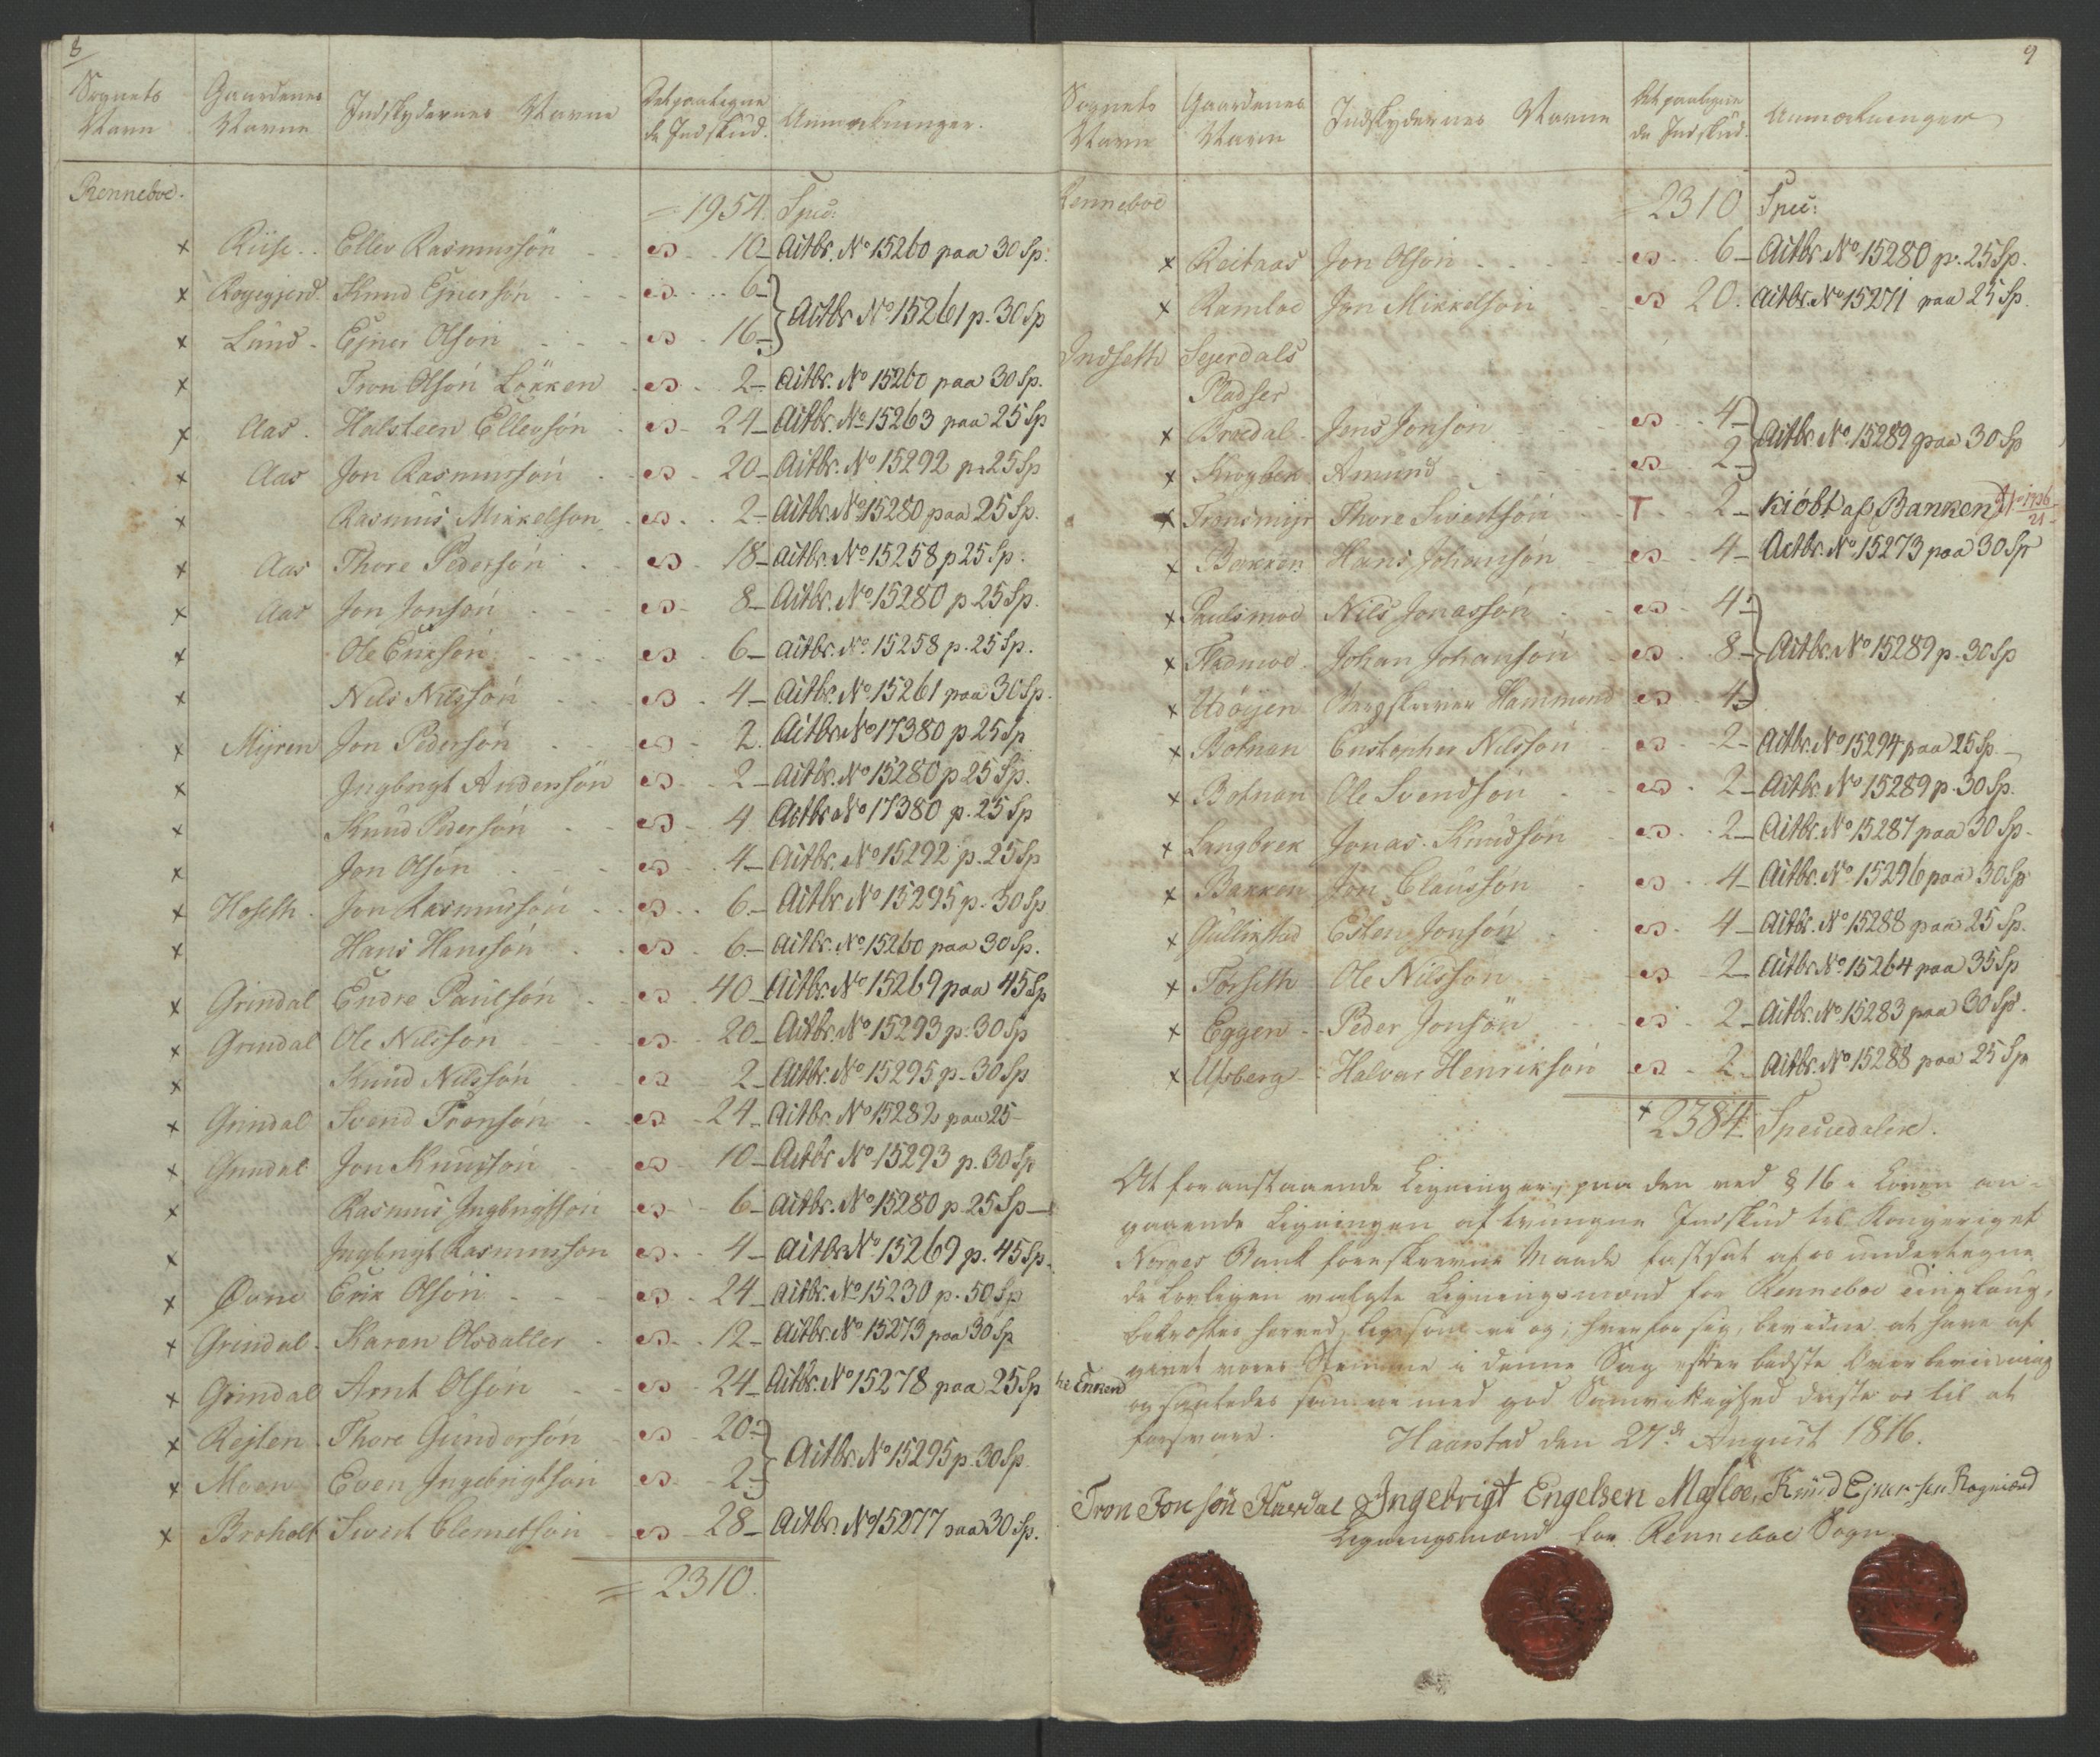 8
Sognets Navn | Gaardenes Navne | Indskydernes Navne | Det paaligne de Indskud. | Anmærkninger.
Renneboe. = 1954. Spec:
x Riise.. Ellev Rasmussön 10 Actbr. No 15260 paa 30 Sp.
x Rogegjerd. Knud Ejnersön 6 } Actbr No 15261 p. 30 Sp
x Lund. Ejner Olsön 16
x Tron Olsön Lökken 2 Actbr. No 15260 paa 30 Sp.
x Aas. Halsteen Ellevsön 24 Actbr. No 15263 paa 25 Sp
x Aas Jon Rasmussön 20 Actbr. No 15292 p. 25 Sp
x Rasmus Mikkelsön 2 Actbr. No 15280 paa 25 Sp.
x Aas Thore Pedersön 18 Actbr. No 15258 p 25 Sp.
x Aas Jon Jonsön 8 Actbr. No 15280 p 25 Sp.
x Ole Eriksön 6 Actbr. No 15258 p. 25 Sp.
x Nils Nilssön 4 Actbr. No 15261 paa 30 Sp.
x Myren Jon Pedersön 2. Actbr No 17380 p 25 Sp
x Ingbrigt Andersön 2 Actbr. No 15280 p 25 Sp.
x Knud Pedersön 4 Actbr No 17380 p. 25 Sp
x Jon Olsön 4 Actbr. No 15292 p. 25 Sp
x Hoseth. Jon Rasmussön 6. Actbr. No 15295 p. 30 Sp
x Hans Hanssön 6. Actbr. No 15260 paa 30 Sp.
x Grindal Endre Paulsön 40 Actbr. No 15269 paa 45 Sp
x Grindal Ole Nilssön 20 Actbr. No 15293 p. 30 Sp
x Knud Nilssön 2 Actbr. No 15295 p. 30 Sp
x Grindal Svend Tronsön 24 Actbr. No 15282 paa 25
x Grindal Jon Knudsön 10 Actbr No 15293 p. 30 Sp
x Rasmus Ingbrigtsön 6 Actbr. No 15280 p 25 Sp
x Ingbrigt Rasmussön 4 Actbr No 15269 p. 45 Sp.
x Øvne Erik Olsön 24 Actbr. No 15230 p. 50 Sp
x Grindal. Karen Olsdatter 12 Actbr. No 15273 paa 30 Sp
x Grindal Arnt Olsön 24 Actbr. No 15278 paa 25 Sp
x Rejten Thore Gundersön 20 } Actbr. No 15295 p. 30 Sp
x Moen Even Ingebrigtsön 2
x Broholt Sivert Clemetsön 28 Actbr. No 15277 paa 30 Sp.
= 2310.
9
Sognets Navn | Gaardenes Navn | Indskydernes Navne | Det paaligne de Indskud. | Anmærkninger
Renneboe = 2310 Spec:
x Reitaas Jon Olsön 6 Actbr. No 15280 p. 25 Sp.
x Ramloe Jon Mikkelsön 20. Actbr. No 15271 paa 25 Sp.
Indseth Sejerdals
Pladser
x Broedal Jens Jonsön 4 } Actbr. No 15289 paa 30 Sp
x Krogbek Amund 2
x Tronsmyr Thore Sivertsön T 2 Kiöbt af Banken
x Bakken Hans Johansön 4 Actbr. No 15273 paa 30 Sp
x Paulsmoe Nils Jonassön 4 } Actbr. No 15289 p. 30 Sp
x Fladmoe. Johan Johansön 8
x Udöyen Bergskriver Hammond 4
x Botnan Cristopher Nilssön 2 Actbr. No 15294 paa 25 Sp.
x Botnan Ole Svendsön 2 Actbr. No 15289 p. 30 Sp.
x Langbrek Jonas Knudsön 2 Actbr. No 15287 paa 30 Sp.
x Bakken Jon Claussön 4 Actbr. No 15296 paa 30 Sp
x Gullikstad Esten Jonsön 4 Actbr. No 15288 paa 25 Sp.
x Torseth Ole Nilssön 2 Actbr No 15264 paa 35 Sp
x Eggen Peder Jonsön 2 Actbr. No 15283 paa 30 Sp.
x Ufsberg Halvor Henriksön 2 Actbr. No 15288 paa 25 Sp
x 2384 Speciedaler.
At foranstaaende Ligninger, paa den ved § 16 i Loven an-
gaaende Ligningen af tvungne Indskud til Kongeriget
Norges Bank foreskrevne Maade fastsat af os undertegne
de Lovligen valgte Ligningsmænd for Renneboe Tinglaug,
bekræftes herved, ligesom vi og, hver for sig, bevidne at have af
givet vores Stemme i denne Sag efter bedste Overbeviisning
til Enken
og saaledes som vi med god Samvittighed trøste os til at
forsvare.
Haarstad den 27de August 1816.
Tron Jonsön Kurdal Ingebrigt Engelsen Mysloe, Knud Ejnersen
Ligningsmænd for Renneboe Sogn.